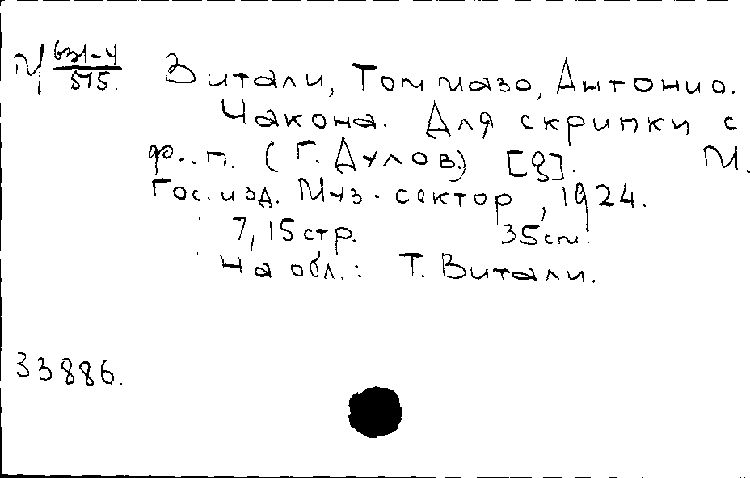 М 631-4/515.
Витали, Томмазо, Антонио.
Чакона. Для скрипки с
ф.-п. (Г. Дулов) [З]. М.
Гос. изд. Муз. сектор, 1924.
7, 15 стр. 35 см.
На обл.: Т. Витали.
33886.